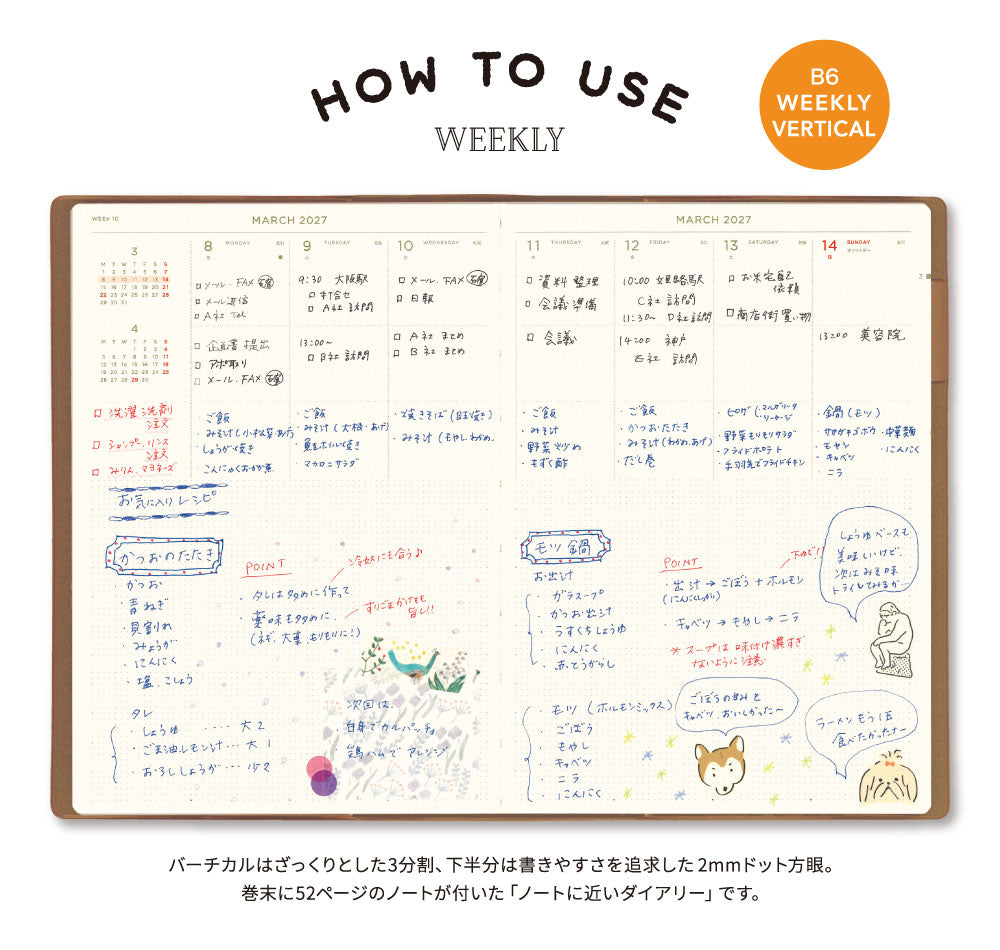 HOW TO USE
WEEKLY
B6
WEEKLY
VERTICAL
WEEK 10
MARCH 2027
MARCH 2027
3
M T W T F S S
1 2 3 4 5 6 7
8 9 10 11 12 13 14
15 16 17 18 19 20 21
22 23 24 25 26 27 28
29 30 31
4
M T W T F S S
1 2 3 4
5 6 7 8 9 10 11
12 13 14 15 16 17 18
19 20 21 22 23 24 25
26 27 28 29 30
8 MONDAY
月
□ メール・FAX
□ メール返信
□ A社 Tel
□ 企画書 提出
□ アポ取り
□ メール・FAX
9 TUESDAY
火
9:30 大阪駅
□ 打合せ
□ A社 訪問
13:00〜
□ B社 訪問
10 WEDNESDAY
水
□ メール・FAX
□ 日報
□ A社 まとめ
□ B社 まとめ
11 THURSDAY
木
□ 資料整理
□ 会議準備
□ 会議
12 FRIDAY
金
10:00 姫路駅
C社 訪問
11:30〜 D社訪問
14:00 神戸
E社 訪問
13 SATURDAY
土
□ お米宅配
依頼
□ 商店街買い物
14 SUNDAY
日 ホワイトデー
13:00 美容院
3
□ 洗濯洗剤
注文
□ シャンプー、リンス
注文
□ みりん、マヨネーズ
・ご飯
・みそ汁(小松菜・あげ)
・しょうが焼き
・こんにゃくおかか煮
・ご飯
・みそ汁(大根・あげ)
・魚ホイル焼き
・マカロニサラダ
・焼きそば(目玉焼き)
・みそ汁(もやし わかめ)
・ご飯
・みそ汁
・野菜炒め
・もずく酢
・ご飯
・かつおたたき
・みそ汁(わかめ、あげ)
・だし巻
・ピザ(・マルゲリータ
・ソーセージ
・野菜モリモリサラダ
・フライドポテト
・手羽先でフライドチキン
・鍋(モツ)
・ササガキゴボウ ・中華麺
・モヤシ ・にんにく
・キャベツ
・ニラ
お気に入りレシピ
かつおのたたき
・かつお
・青ねぎ
・貝割れ
・みょうが
・にんにく
・塩、こしょう
タレ
・しょうゆ……大2
・ごま油レモン汁…大1
・おろししょうが…小2
POINT
冷奴にも合う♪
・タレは多めに作って
・薬味も多めに
(ネギ、大葉、もりもりに!)
すりごまかけても
旨し!!
次回は
・白身でカルパッチョ
・鶏ハムで アレンジ
モツ鍋
お出汁
・ガラスープ
・かつお出汁
・うすくちしょうゆ
・にんにく
・赤とうがらし
・モツ(ホルモンミックス)
・ごぼう
・もやし
・キャベツ
・ニラ
・にんにく
POINT
・出汁→ごぼう+ホルモン
(にんにくしっかり)
・キャベツ→もやし→ニラ
※スープは味付け濃すぎ
ないように注意
しょうゆベースも
美味しいけど、
次はみそ味
トライしてみるか…
ごぼうの甘みと
キャベツ、おいしかった〜
ラーメンもう1玉
食べたかったナー
バーチカルはざっくりとした3分割、下半分は書きやすさを追求した2mmドット方眼。
巻末に52ページのノートが付いた「ノートに近いダイアリー」です。